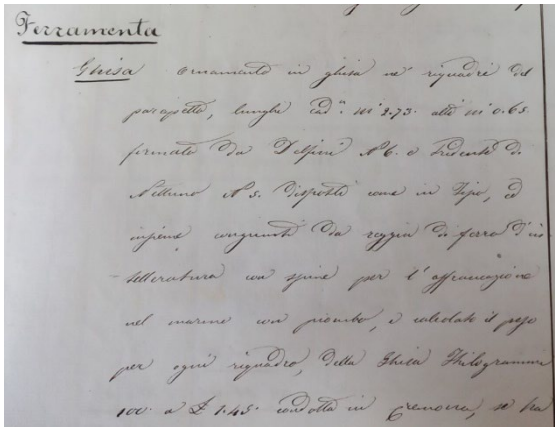 Ferramenta
Ghisa Ornamento in ghisa ne' riquadri del
parapetto, lunghi cad.º m' 2.73. alti m' 0.65
formato da Delfini Nº 6. e Tridenti di
Nettuno Nº 5. disposti come in Tipo, ed
insieme congiunti da reggia di ferro d'in
telleratura con spine per l'affrancazione
nel marmo con piombo, e calcolato il peso
per ogni riquadro, della Ghisa Kilogrammi
100. a £ 1.45. condotta in Genova, si ha